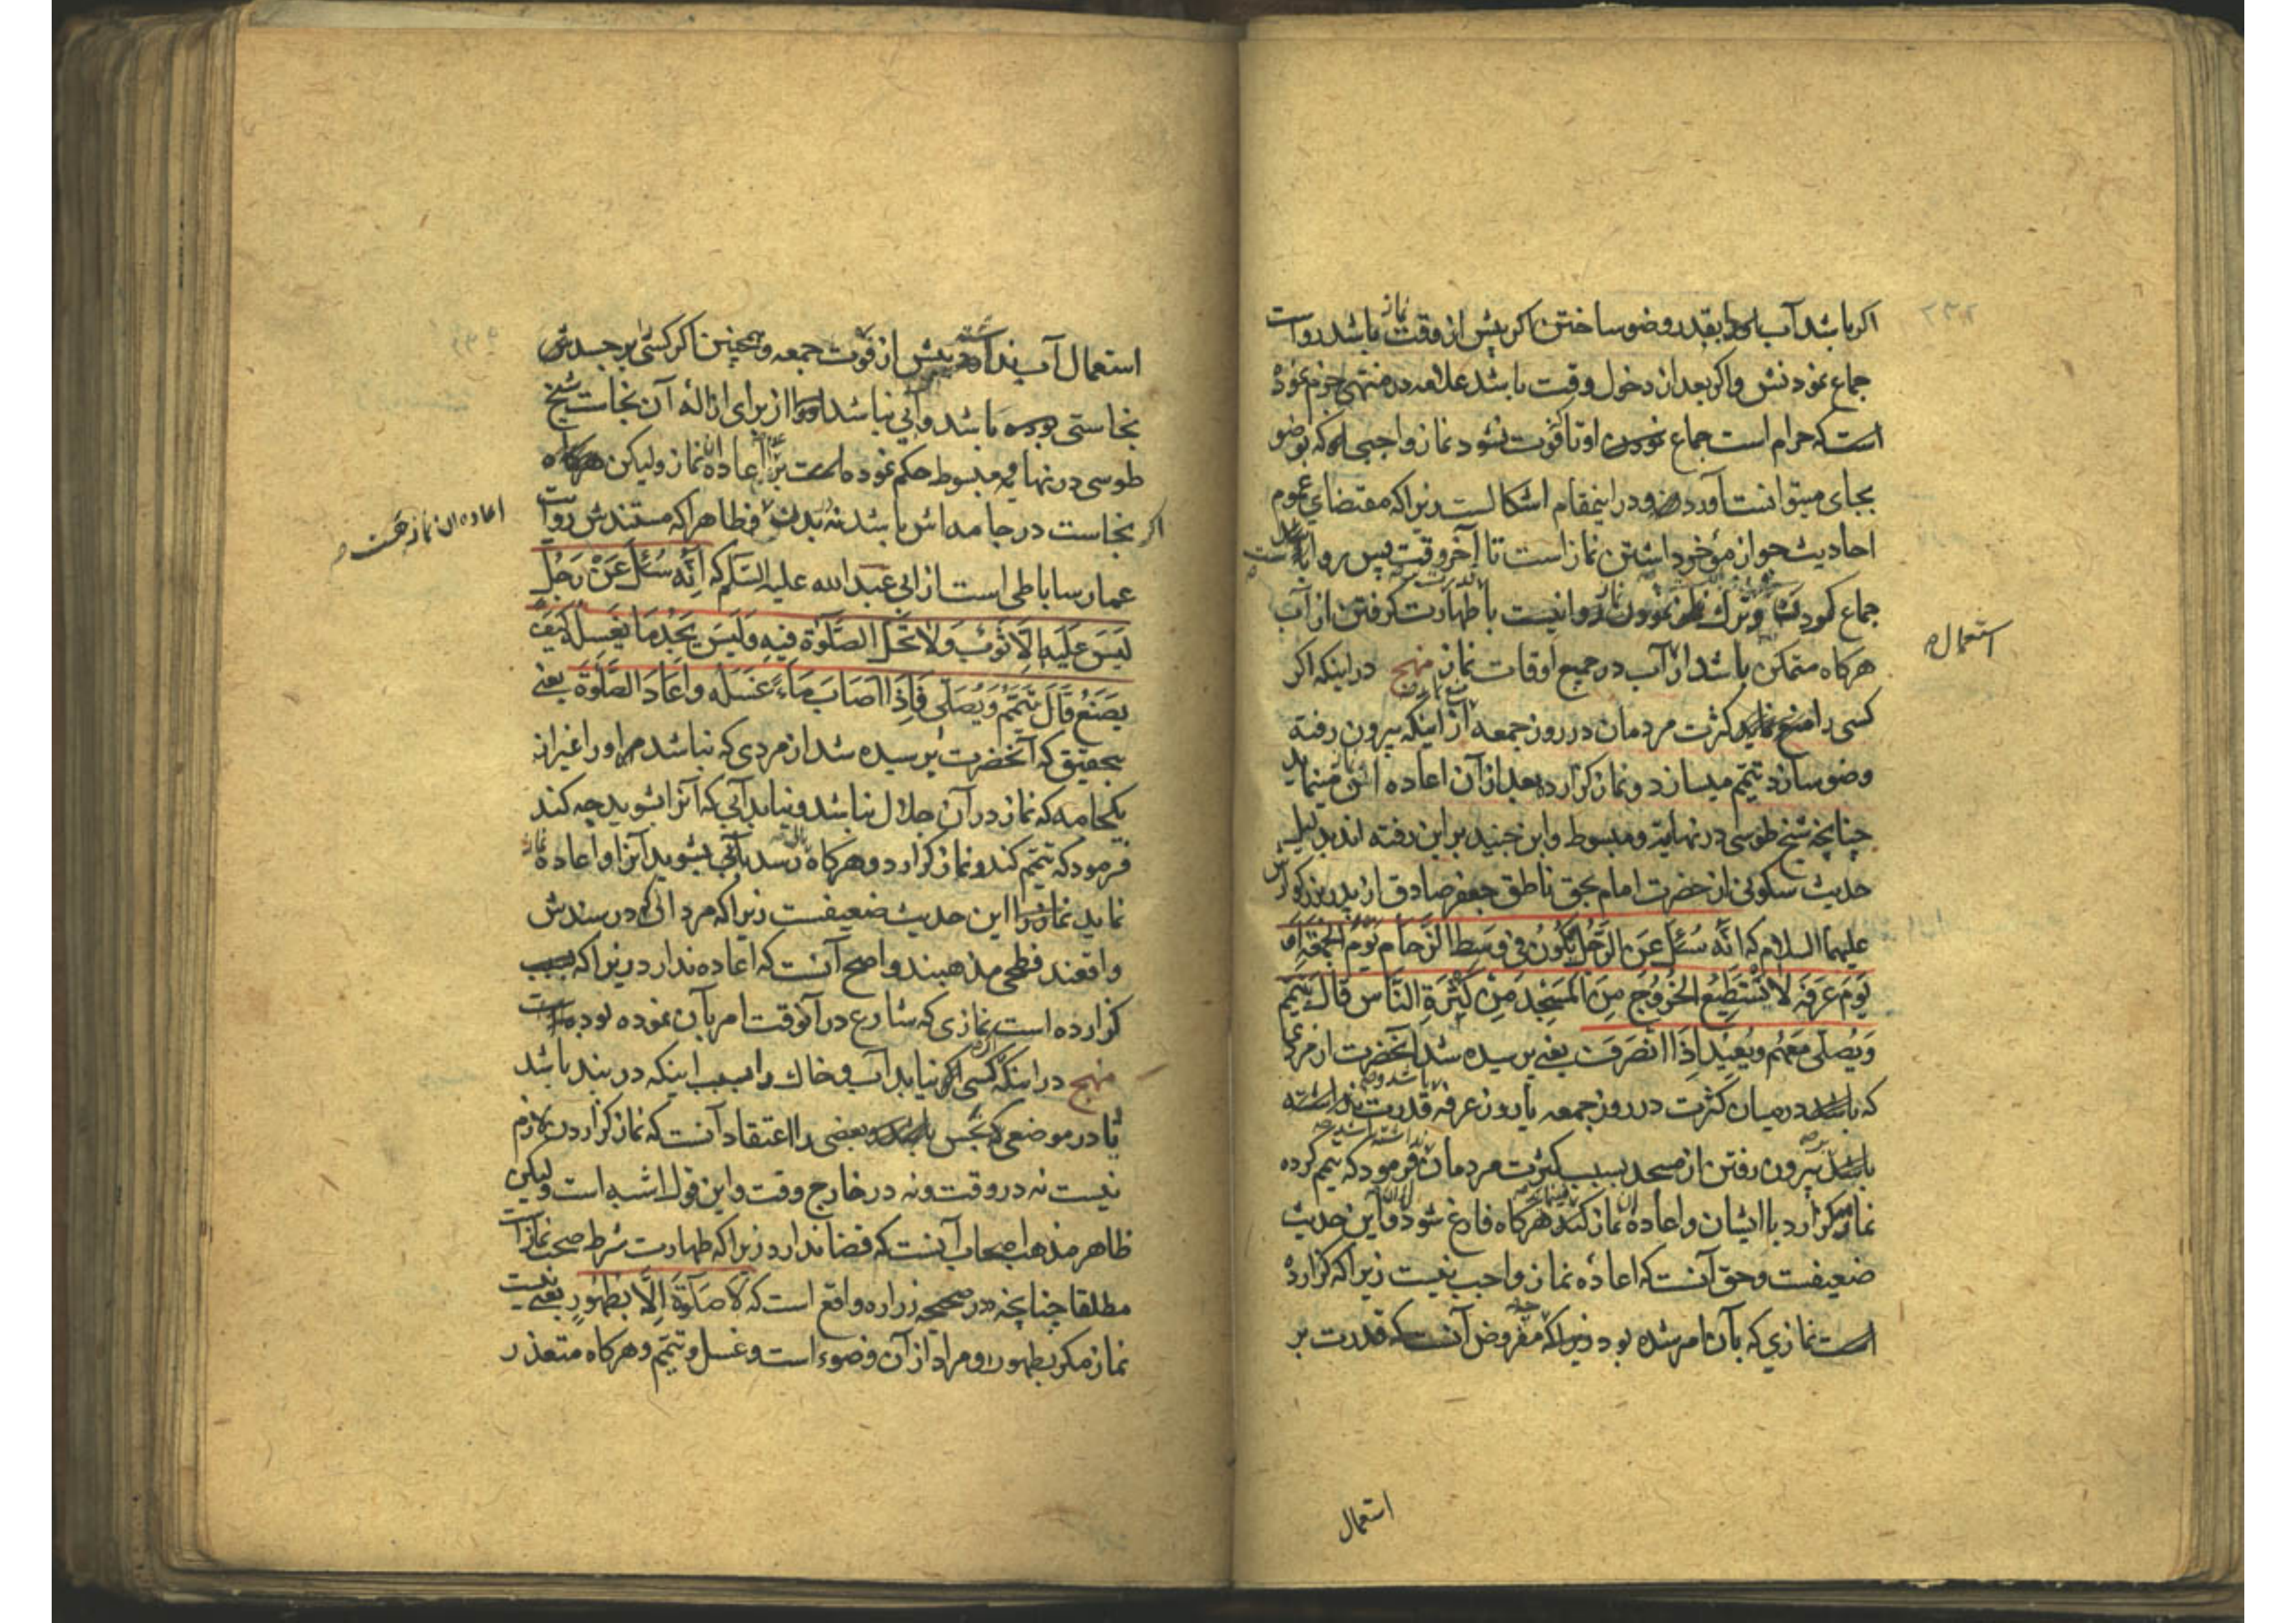 اکر باشد آب بقدر وضو ساختن اکر پیش از وقت نماز باشد رواست
جماع نمودنش واکر بعد از دخول وقت باشد علامه در منتهی جزم نموده
است که حرام است جماع نمودن او تا فوت نشود نماز واجبی که بوضو
بجای میتوانست آورد و در اینمقام اشکالست زیرا که مقتضای عموم
احادیث جواز مؤخر داشتن نماز است تا آخر وقت پس روا
جماع کردن وترک نمودن روا نیست با طهارت کرفتن از آب
استعمال
هرکاه متمکن باشد از آب در جمیع اوقات نماز منهج در اینکه اکر
کسی را منع نماید کثرت مردمان در روز جمعه از اینکه بیرون رفته
وضو سازد تیمم میسازد ونماز کزارده بعد از آن اعاده مینماید
چنانچه شیخ طوسی در نهایة ومبسوط وابن جنید بر این رفته اند بدلیل
حدیث سکونی از حضرت امام بحق ناطق جعفر صادق از پدر بزرکوارش
علیهما السلام که انَّه سُئِلَ عَنِ الرَّجُلِ یَکُونُ فی وَسَطِ الزَّحامِ یَوْمَ الجُمُعَةِ اَوْ
یَوْمَ عَرَفَةَ لا یَسْتَطیعُ الخُرُوجَ مِنَ المَسْجِدِ مِنْ کَثْرَةِ النَّاسِ قالَ یَتَیَمَّمُ
وَیُصَلّی مَعَهُم ویُعیدُ اِذَا انْصَرَفَ یعنی پرسیده شد آنحضرت از مردی
که باشد در میان کثرت در روز جمعه یا روز عرفه قدرت نداشته
باشد بیرون رفتن از مسجد بسبب کثرت مردمان فرمود که تیمم کرده
نماز کزارد با ایشان واعاده نماز کند هرکاه فارغ شود واین حدیث
ضعیفست وحق آنست که اعاده نماز واجب نیست زیرا که کزارده
است نمازی که بآن امر شده بود زیرا که مفروض آنست که قدرت بر
استعمال
استعمال آب نداشته پیش از فوت جمعه وهمچنین اکر کسی بر جسدش
نجاستی باشد وآبی نباشد از برای ازاله آن نجاست شیخ
طوسی در نهایه ومبسوط حکم نموده است بر اعاده نماز ولیکن
اکر نجاست در جامه اش باشد نه بدن وظاهرا که مستندش روایت
عمار ساباطی است از ابی عبد الله علیه السلام که اِنَّه سُئِلَ عَنْ رَجُلٍ
لَیْسَ عَلَیهِ اِلّا ثَوْبٌ وَلا تَحِلُّ الصَّلوٰةُ فیهِ وَلَیْسَ یَجِدُ مَا یَغْسِلُه کَیْفَ
یَصْنَعُ قَالَ یَتَیَمَّمُ وَیُصَلّی فَاِذَا اَصَابَ مَاءً غَسَلَهُ وَاَعَادَ الصَّلوٰةَ یعنی
بتحقیق که آنحضرت پرسیده شد از مردی که نباشد مر او را غیر از
یکجامه که نماز در آن حلال نباشد ونیابد آبی که آنرا بشوید چه کند
فرمود که تیمم کند ونماز کزارد وهرکاه رسد بآبی بشوید آنرا واعاده
نماید نماز را این حدیث ضعیفست زیرا که مردانی که در سندش
واقعند فطحی مذهبند واصح آنست که اعاده ندارد زیرا که
کزارده است نمازی که شارع در آنوقت امر بآن نموده بوده است
منهج در اینکه کسی نیابد آب وخاک را بسبب اینکه در بند باشد
یا در موضعی که نجس باشد وبعضی را اعتقاد آنست که نماز کزاردن لازم
نیست نه در وقت ونه در خارج وقت واین قول اشبه است ولیکن
ظاهر مذهب اصحاب آنست که قضا ندارد زیرا که طهارت شرط صحت نماز است
مطلقا چنانچه در صحیحه زراره واقع است که لَا صَلٰوةَ اِلَّا بِطَهُورٍ یعنی نیست
نماز مکر بطهور ومراد از آن وضوء است وغسل وتیمم وهرکاه متعذر